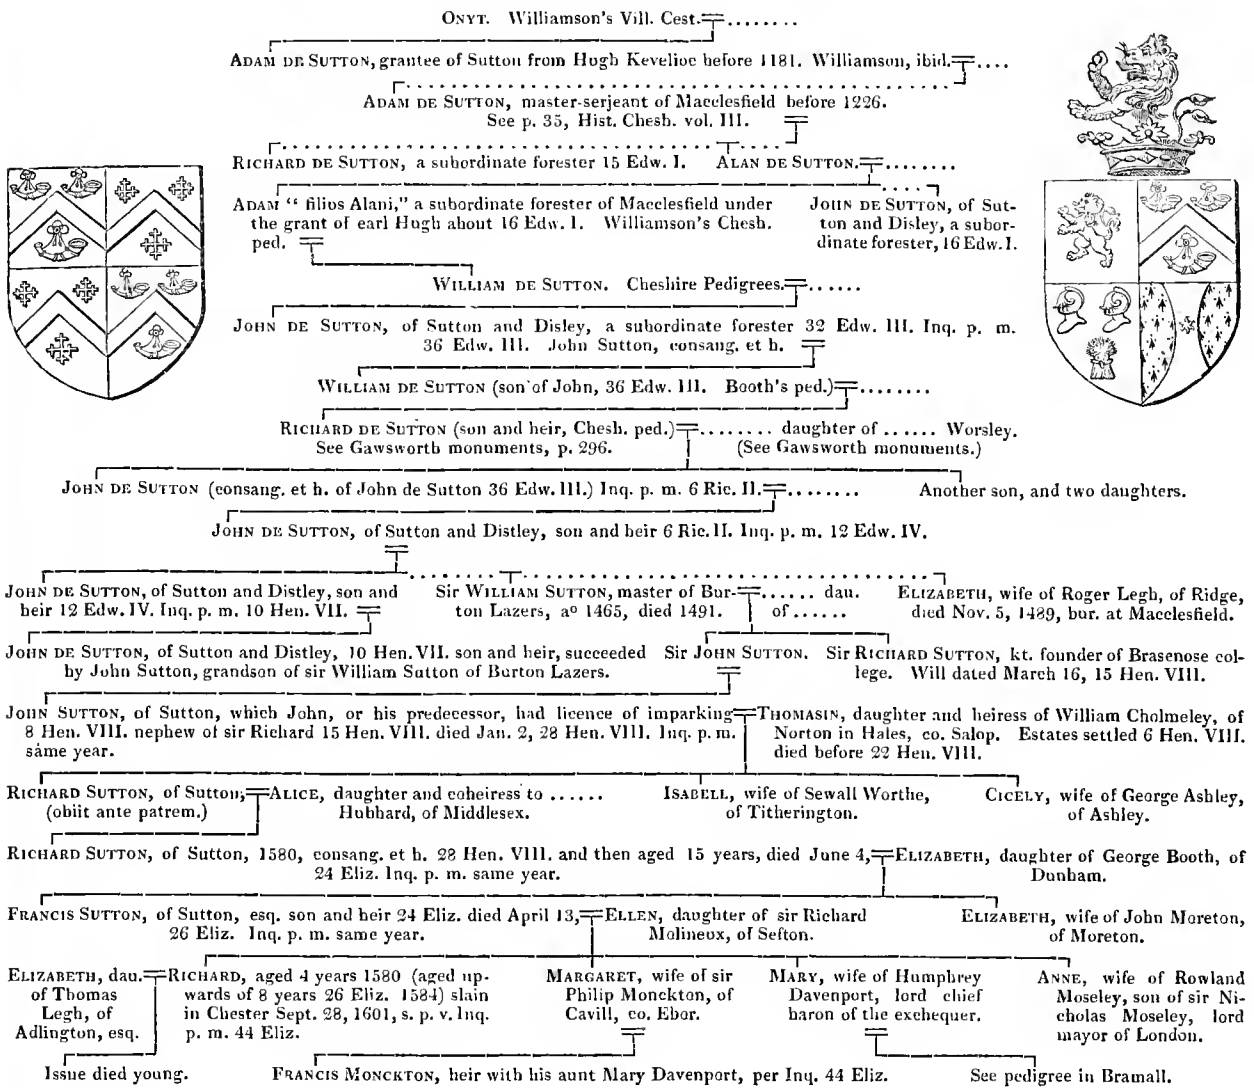 ONYT. Williamson's Vill. Cest. ........
ADAM DE SUTTON, grantee of Sutton from Hugh Kevelioc before 1181. Williamson, ibid. ....
ADAM DE SUTTON, master-serjeant of Macclesfield before 1226.
See p. 35, Hist. Chesh. vol. III.
RICHARD DE SUTTON, a subordinate forester 15 Edw. I. ALAN DE SUTTON. ........
ADAM “ filius Alani,” a subordinate forester of Macclesfield under
the grant of earl Hugh about 16 Edw. I. Williamson's Chesh.
ped.
JOHN DE SUTTON, of Sut-
ton and Disley, a subor-
dinate forester, 16 Edw. I.
WILLIAM DE SUTTON. Cheshire Pedigrees. ......
JOHN DE SUTTON, of Sutton and Disley, a subordinate forester 32 Edw. III. Inq. p. m.
36 Edw. III. John Sutton, consang. et h.
WILLIAM DE SUTTON (son of John, 36 Edw. III. Booth's ped.) ........
RICHARD DE SUTTON (son and heir, Chesh. ped.) ........ daughter of ...... Worsley.
See Gawsworth monuments, p. 296. (See Gawsworth monuments.)
JOHN DE SUTTON (consang. et h. of John de Sutton 36 Edw. III.) Inq. p. m. 6 Ric. II. ........ Another son, and two daughters.
JOHN DE SUTTON, of Sutton and Distley, son and heir 6 Ric. II. Inq. p. m. 12 Edw. IV.
JOHN DE SUTTON, of Sutton and Distley, son and
heir 12 Edw. IV. Inq. p. m. 10 Hen. VII.
Sir WILLIAM SUTTON, master of Bur- ...... dau.
ton Lazers, aº 1465, died 1491. of ......
ELIZABETH, wife of Roger Legh, of Ridge,
died Nov. 5, 1489, bur. at Macclesfield.
JOHN DE SUTTON, of Sutton and Distley, 10 Hen. VII. son and heir, succeeded
by John Sutton, grandson of sir William Sutton of Burton Lazers.
Sir JOHN SUTTON.
Sir RICHARD SUTTON, kt. founder of Brasenose col-
lege. Will dated March 16, 15 Hen. VIII.
JOHN SUTTON, of Sutton, which John, or his predecessor, had licence of imparking
8 Hen. VIII. nephew of sir Richard 15 Hen. VIII. died Jan. 2, 28 Hen. VIII. Inq. p. m.
same year.
THOMASIN, daughter and heiress of William Cholmeley, of
Norton in Hales, co. Salop. Estates settled 6 Hen. VIII.
died before 22 Hen. VIII.
RICHARD SUTTON, of Sutton,
(obiit ante patrem.)
ALICE, daughter and coheiress to ......
Hubbard, of Middlesex.
ISABELL, wife of Sewall Worthe,
of Titherington.
CICELY, wife of George Ashley,
of Ashley.
RICHARD SUTTON, of Sutton, 1580, consang. et h. 28 Hen. VIII. and then aged 15 years, died June 4,
24 Eliz. Inq. p. m. same year.
ELIZABETH, daughter of George Booth, of
Dunham.
FRANCIS SUTTON, of Sutton, esq. son and heir 24 Eliz. died April 13,
26 Eliz. Inq. p. m. same year.
ELLEN, daughter of sir Richard
Molineux, of Sefton.
ELIZABETH, wife of John Moreton,
of Moreton.
ELIZABETH, dau.
of Thomas
Legh, of
Adlington, esq.
RICHARD, aged 4 years 1580 (aged up-
wards of 8 years 26 Eliz. 1584) slain
in Chester Sept. 28, 1601, s. p. v. Inq.
p. m. 44 Eliz.
MARGARET, wife of sir
Philip Monckton, of
Cavill, co. Ebor.
MARY, wife of Humphrey
Davenport, lord chief
baron of the exchequer.
ANNE, wife of Rowland
Moseley, son of sir Ni-
cholas Moseley, lord
mayor of London.
Issue died young.
FRANCIS MONCKTON, heir with his aunt Mary Davenport, per Inq. 44 Eliz.
See pedigree in Bramall.